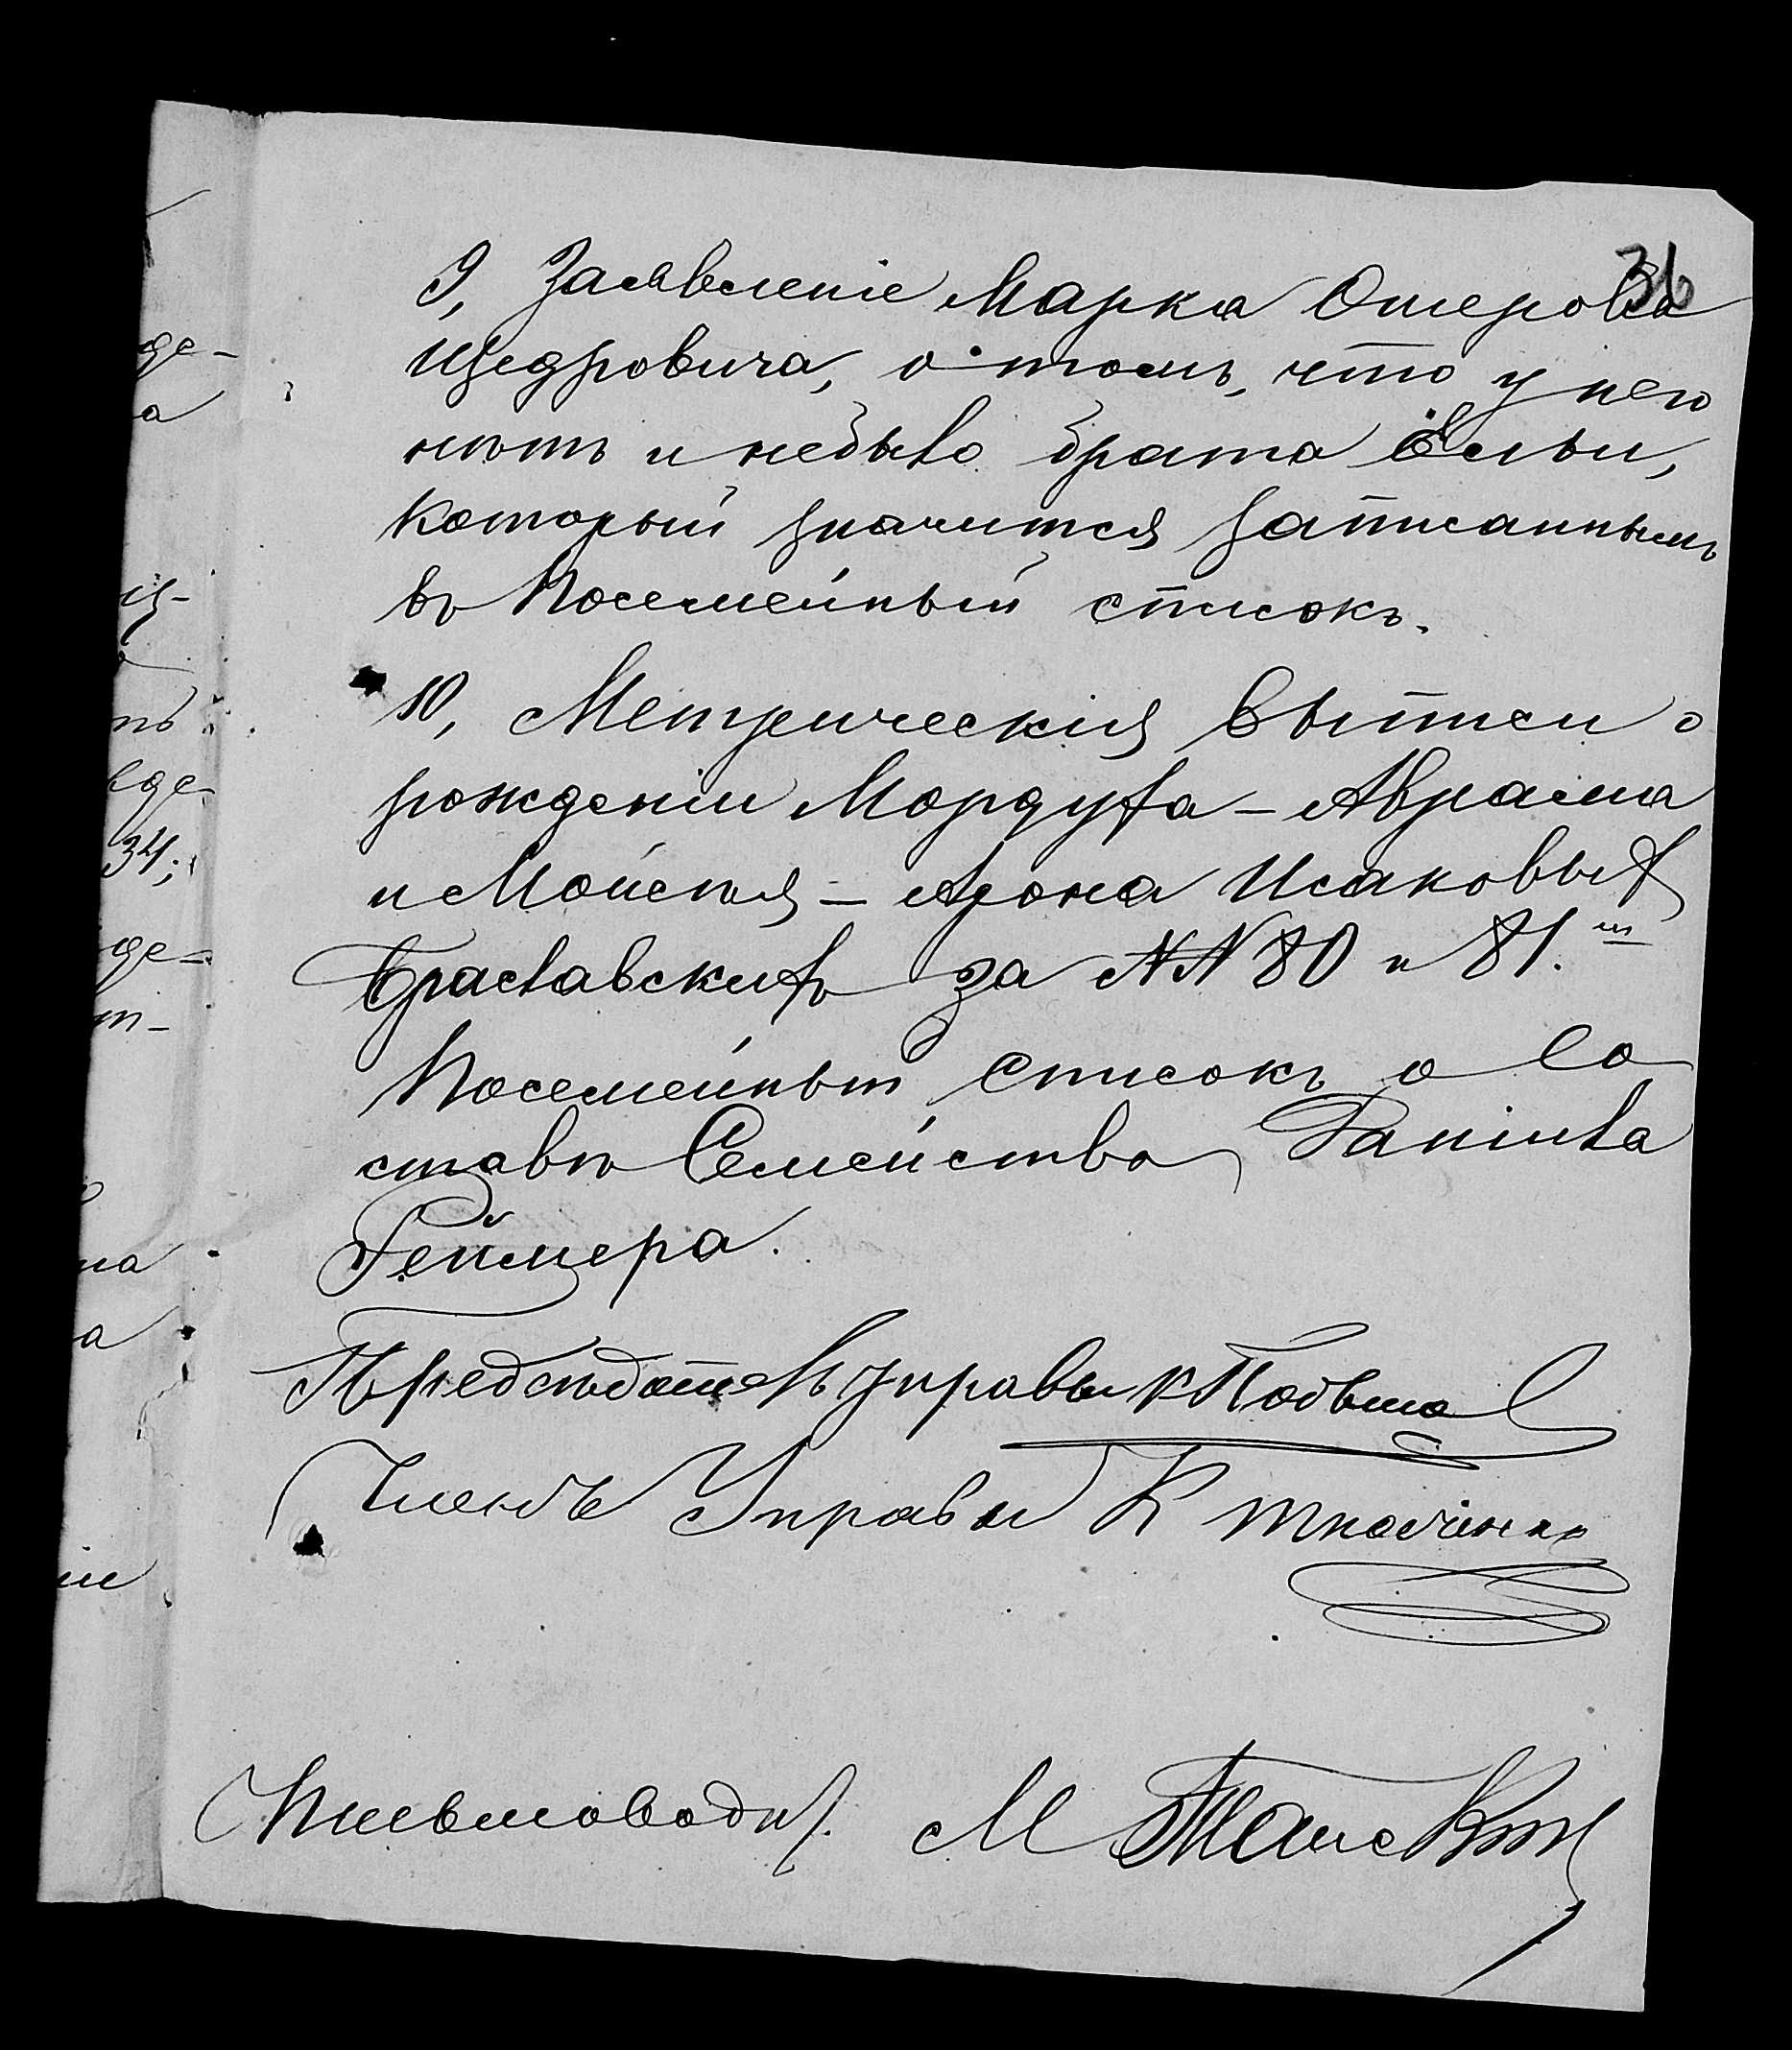 36
9, Заявленіе Марка Ошерова
Щедровича, о томъ, что у него
нѣтъ и небыло брата
который значится записаннымъ
въ Посемейный списокъ.
10, Метрическія выписи о
рожденіи Мордуха - Авраама
и Мойсея - Арона Исаковыхъ
Браславскихъ за №№ 80 и 81.
Посемейный списокъ о со
ставѣ Семейства
Предсѣдатель управы
Членъ Управы К Ткаченко
Письмовод. М
де-
а
34;
де-
на
а